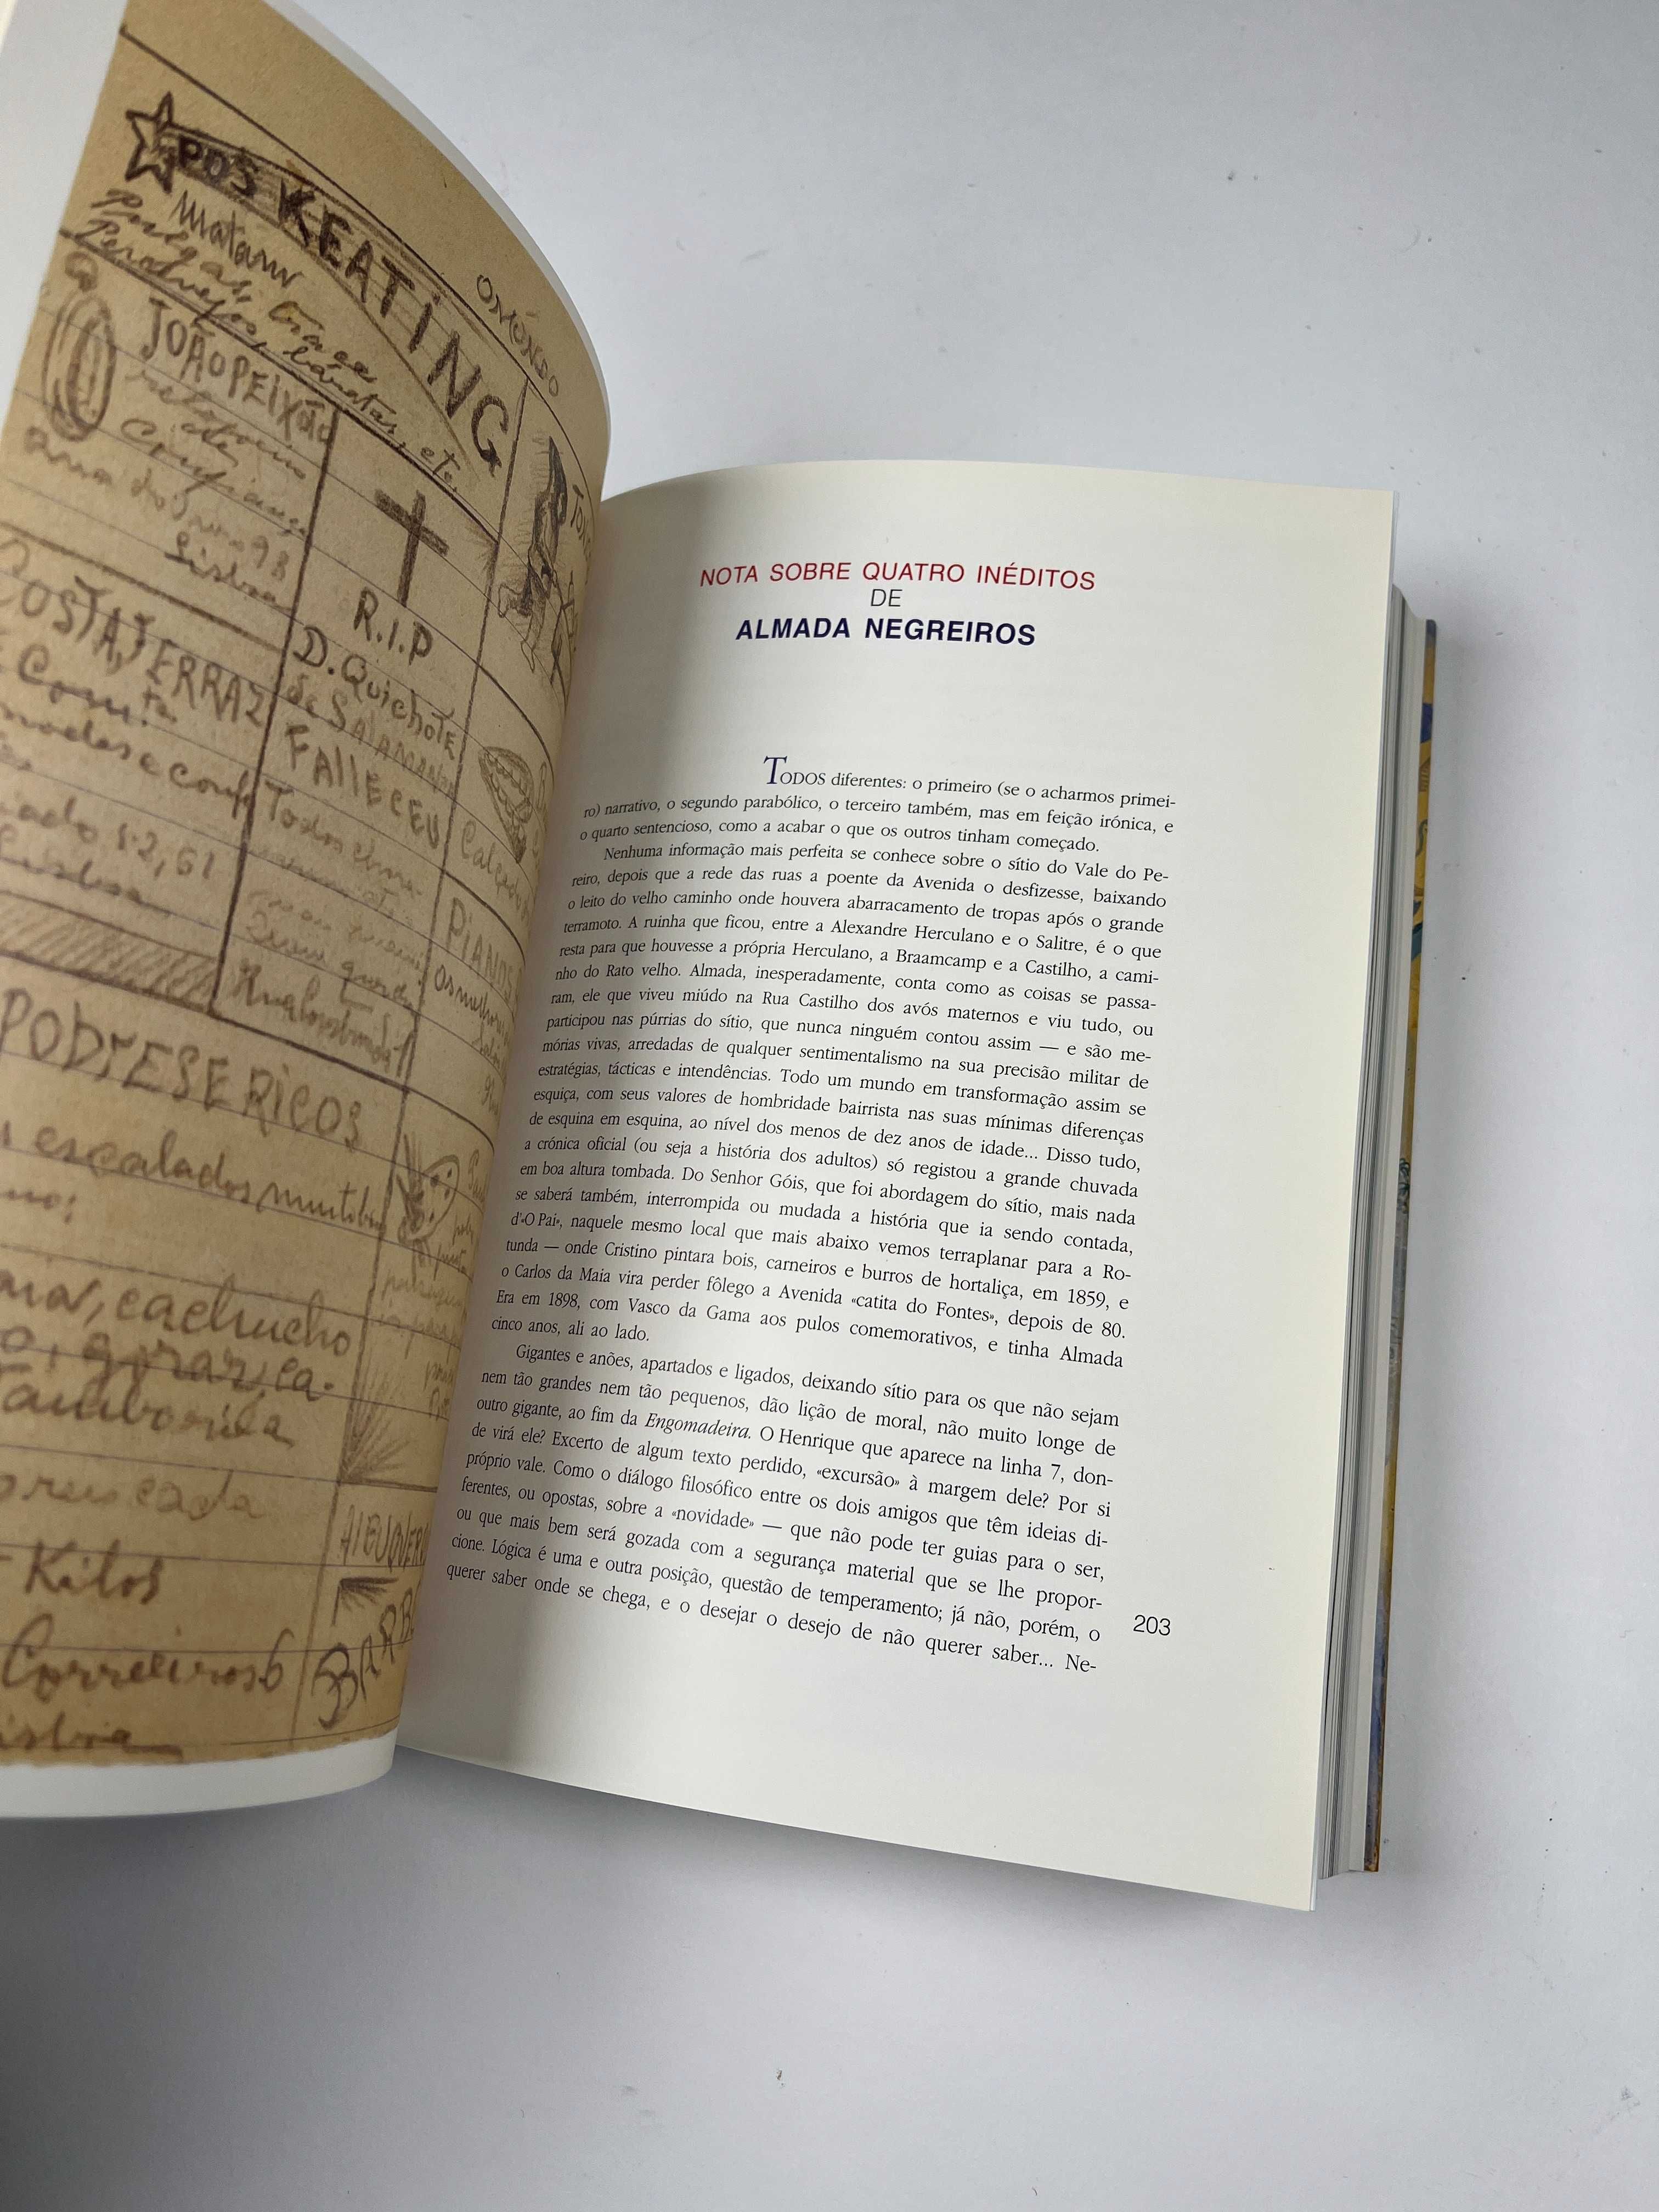 PÓS KEATING
matam
Pulgas, traças
Persevejos, baratas, etc.
JOÃO PEIXÃO
de
Lisboa
COSTA, FERRAZ
R.I.P
D. Quichote
de Salamanca
FALLECEU
PIANOS
os melhores
PODTESERICOS
escalados muito
cachucho
goraz, ca-
Tamboril
cada
Kilos
Correeiros 6
NOTA SOBRE QUATRO INÉDITOS
DE
ALMADA NEGREIROS
TODOS diferentes: o primeiro (se o acharmos primei-
ro) narrativo, o segundo parabólico, o terceiro também, mas em feição irónica, e
o quarto sentencioso, como a acabar o que os outros tinham começado.
Nenhuma informação mais perfeita se conhece sobre o sítio do Vale do Pe-
reiro, depois que a rede das ruas a poente da Avenida o desfizesse, baixando
o leito do velho caminho onde houvera abarracamento de tropas após o grande
terramoto. A ruinha que ficou, entre a Alexandre Herculano e o Salitre, é o que
resta para que houvesse a própria Herculano, a Braamcamp e a Castilho, a cami-
nho do Rato velho. Almada, inesperadamente, conta como as coisas se passa-
ram, ele que viveu miúdo na Rua Castilho dos avós maternos e viu tudo, ou
participou nas púrrias do sítio, que nunca ninguém contou assim — e são me-
mórias vivas, arredadas de qualquer sentimentalismo na sua precisão militar de
estratégias, tácticas e intendências. Todo um mundo em transformação assim se
esquiça, com seus valores de hombridade bairrista nas suas mínimas diferenças
de esquina em esquina, ao nível dos menos de dez anos de idade... Disso tudo,
a crónica oficial (ou seja a história dos adultos) só registou a grande chuvada
em boa altura tombada. Do Senhor Góis, que foi abordagem do sítio, mais nada
se saberá também, interrompida ou mudada a história que ia sendo contada,
d'«O Pai», naquele mesmo local que mais abaixo vemos terraplanar para a Ro-
tunda — onde Cristino pintara bois, carneiros e burros de hortaliça, em 1859, e
o Carlos da Maia vira perder fôlego a Avenida «catita do Fontes», depois de 80.
Era em 1898, com Vasco da Gama aos pulos comemorativos, e tinha Almada
cinco anos, ali ao lado.
Gigantes e anões, apartados e ligados, deixando sítio para os que não sejam
nem tão grandes nem tão pequenos, dão lição de moral, não muito longe de
outro gigante, ao fim da Engomadeira. O Henrique que aparece na linha 7, don-
de virá ele? Excerto de algum texto perdido, «excursão» à margem dele? Por si
próprio vale. Como o diálogo filosófico entre os dois amigos que têm ideias di-
ferentes, ou opostas, sobre a «novidade» — que não pode ter guias para o ser,
ou que mais bem será gozada com a segurança material que se lhe propor-
cione. Lógica é uma e outra posição, questão de temperamento; já não, porém, o
querer saber onde se chega, e o desejar o desejo de não querer saber... Ne-
203